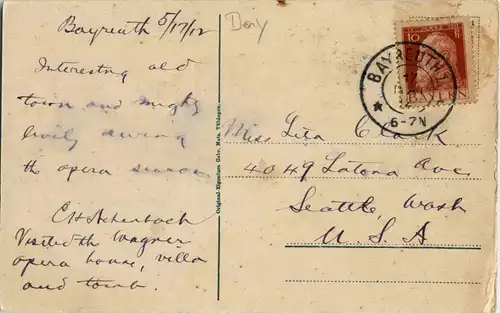 Bayreuth 5/17/12
Interesting old
town and mighty
lively during
the opera season
C H Achenbach
Visited th Wagner
opera house, villa
and tomb.
Derly
Miss Lita Clark
4049 Latona Ave
Seattle, Wash
U.S.A
Original-Eigentum Gebr. Metz, Tübingen
10
BAYREUTH 1
6-7N